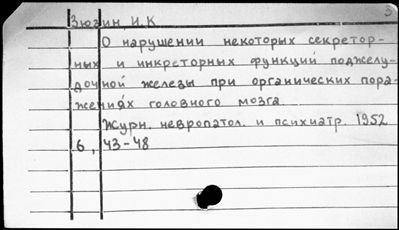 Зюзин, И.К.
О нарушении некоторых секретор-
ных и инкреторных функций поджелу-
дочной железы при органических пора-
жениях головного мозга.
Журн. невропатол. и психиатр. 1952
6, 43-48